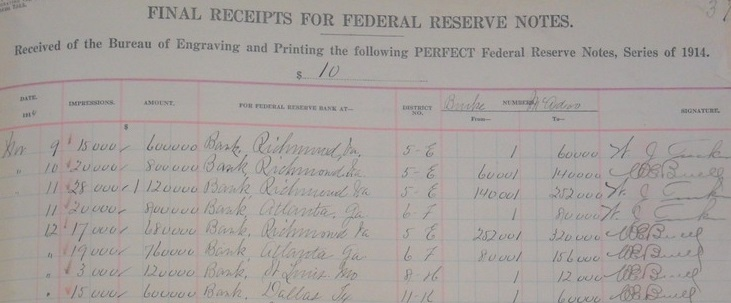 FINAL RECEIPTS FOR FEDERAL RESERVE NOTES.
Received of the Bureau of Engraving and Printing the following PERFECT Federal Reserve Notes, Series of 1914.
$ 10
DATE. IMPRESSIONS. AMOUNT. FOR FEDERAL RESERVE BANK AT— DISTRICT NO. Burke NUMBERS McAdoo SIGNATURE.
191 $ From— To—
Nov 9 15000 600000 Bank, Richmond, Va. 5-E 1 60000
" 10 20000 800000 Bank Richmond Va 5-E 60001 140000
" 11 28000 1120000 Bank Richmond Va 5-E 140001 252000
11 20000 800000 Bank Atlanta, Ga 6 F 1 80000
12 17000 680000 Bank, Richmond Va 5 E 252001 320000
" 19000 760000 Bank, Atlanta Ga 6 F 80001 156000
" 3000 120000 Bank, St Louis Mo 8-H 1 12000
" 15000 600000 Bank, Dallas 11-K 1 60000